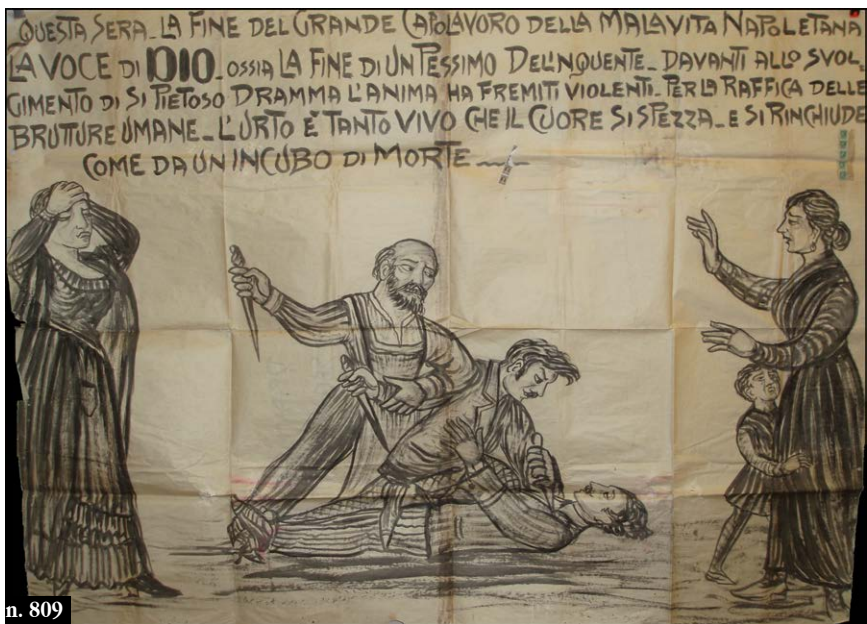 QUESTA SERA_LA FINE DEL GRANDE CAPOLAVORO DELLA MALAVITA NAPOLETANA
LA VOCE DI DIO_OSSIA LA FINE DI UN PESSIMO DELINQUENTE_DAVANTI ALLO SVOL_
GIMENTO DI SI PIETOSO DRAMMA L'ANIMA HA FREMITI VIOLENTI_PER LA RAFFICA DELLE
BRUTTURE UMANE_L'URTO È TANTO VIVO CHE IL CUORE SI SPEZZA_E SI RINCHIUDE
COME DA UN INCUBO DI MORTE
n. 809